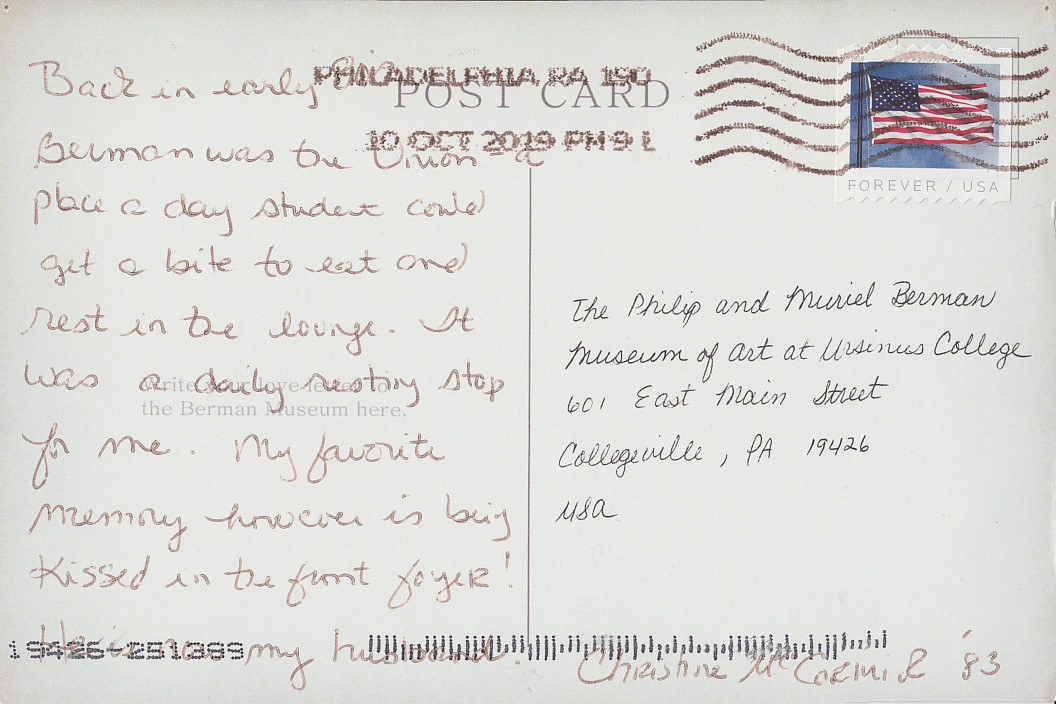 PHILADELPHIA PA 190
POST CARD
10 OCT 2019 PM 9 L
FOREVER / USA
Back in early
Berman was the Union - a
place a day student could
get a bite to eat and
rest in the lounge. It
was a daily resting stop
for me. My favorite
memory however is being
kissed in the front foyer!
He is now my husband.
Christine McCormick '83
Write your love letter to
the Berman Museum here.
The Philip and Muriel Berman
Museum of Art at Ursinus College
601 East Main Street
Collegeville, PA 19426
USA